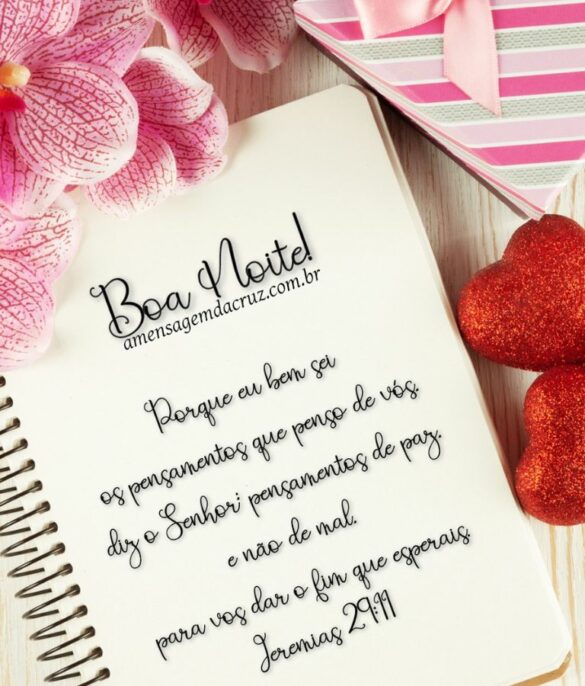 Boa Noite!
amensagemdacruz.com.br
Porque eu bem sei
os pensamentos que penso de vós,
diz o Senhor; pensamentos de paz,
e não de mal,
para vos dar o fim que esperais.
Jeremias 29:11